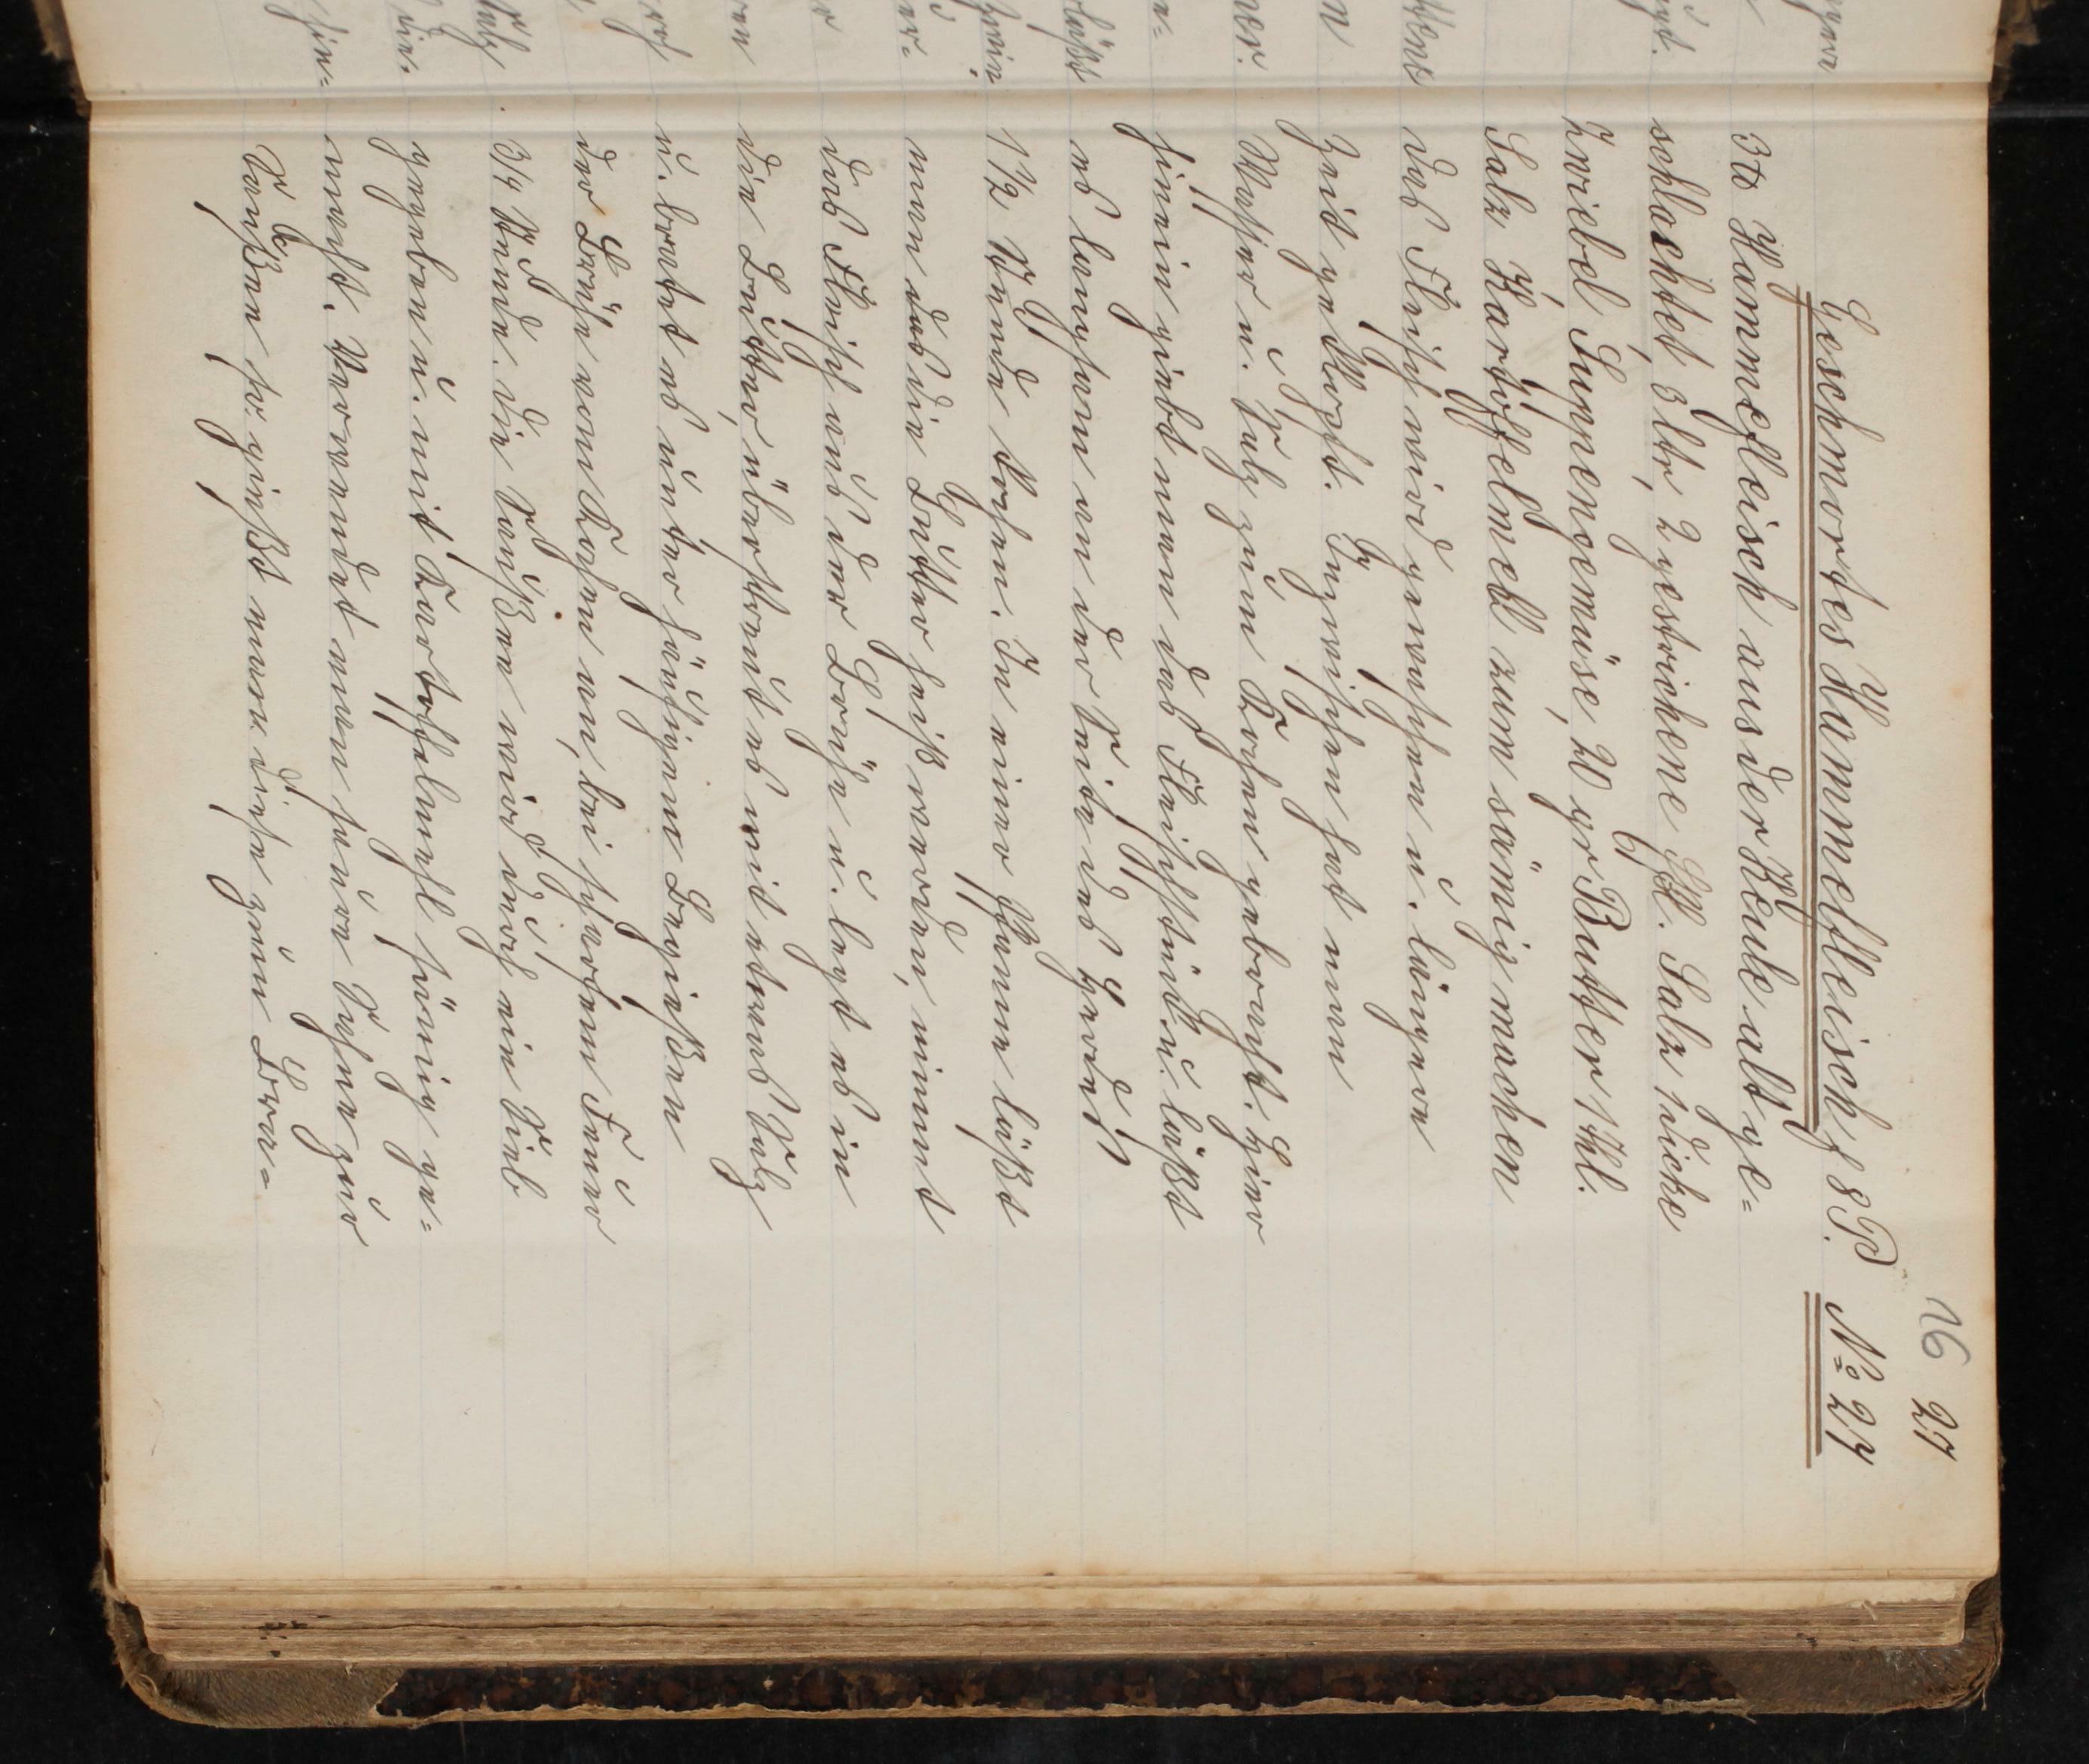 16 27
Geschmortes Hammelfleisch f. 8 P. No 24
3 ℔ Hammelfleisch aus der Keule alt ge=
schlachtet, 3 ltr, 2 gestrichene Eßl. Salz 1 dicke
Zwiebel, Suppengemüse, 20 gr Butter 1 Thl.
Salz, Kartoffelmehl zum sämig machen
Das Fleisch wird gewaschen u. längere
Zeit geklopft. Inzwischen hat man
Wasser u. Salz zum Kochen gebracht. Hier
hinein giebt man das Fleischstück u. läßt
es langsam an der Seite des Herdes
1 1/2 Stunde kochen. In einer Pfanne läßt
man das die Butter heiß werden, nimmt
das Fleisch aus der Brühe u. legt es in
die Butter, überstreut es mit etwas Salz
u. bratet es unter häufigem Begießen
der Brühe vom Kochen an, bei schwachem Feuer
3/4 Stunde. Die Sauße wird durch ein Sieb
gegeben u. mit Kartoffelmehl sämig ge=
macht. Verwendet man saure Sahne zur
Sauße so gießt man diese zum Bra=